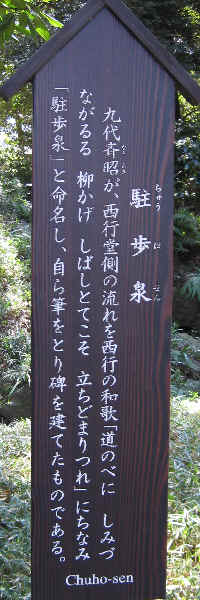 駐歩泉
ちゅうほせん
九代斉昭が、西行堂側の流れを西行の和歌「道のべに しみづ
なりあき
ながるる 柳かげ しばしとてこそ 立ちどまりつれ」にちなみ
「駐歩泉」と命名し、自ら筆をとり碑を建てたものである。
Chuho-sen